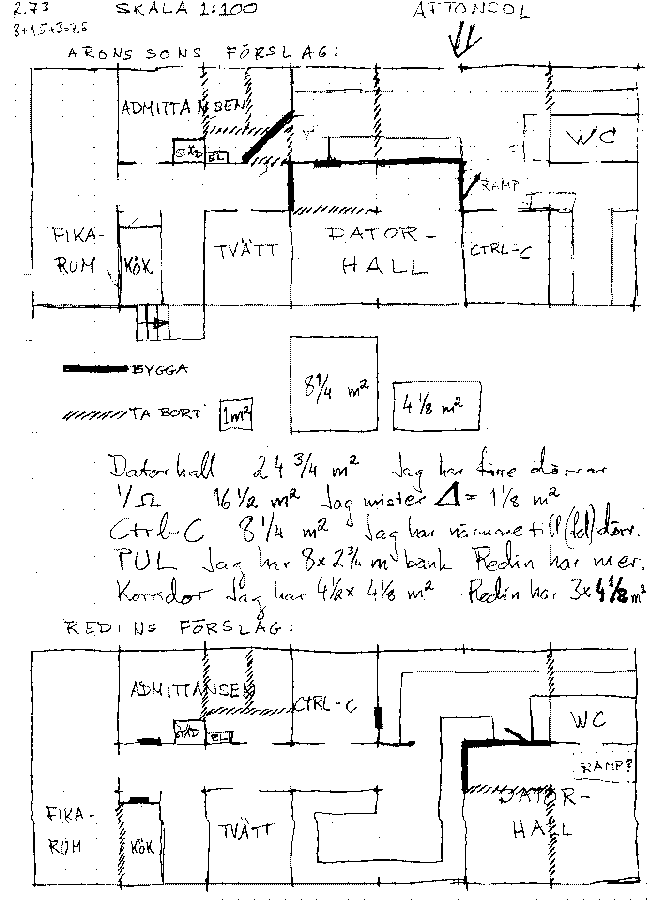 2.73 SKALA 1:100
3+1,5+3=7,5
ARONSSONS FÖRSLAG:
ADMITTANSEN
EL
WC
RAMP
FIKA-
RUM
KÖK
TVÄTT
DATOR-
HALL
CTRL-C
BYGGA
TA BORT
1m²
8¼ m²
4⅛ m²
Datorhall 24 ¾ m² Jag har färre dörrar
1/Ω 16 ½ m² Jag mister Δ = 1⅛ m²
Ctrl-C 8 ¼ m² Jag har närmare till (ld)dörr.
PUL Jag har 8x2¾ m bänk Redin har mer.
Korridor Jag har 4½x 4⅛ m² Redin har 3x4⅛ m²
REDINS FÖRSLAG:
ADMITTANSEN
CTRL-C
STÄD
EL
WC
RAMP?
FIKA-
RUM
KÖK
TVÄTT
DATOR-
HALL